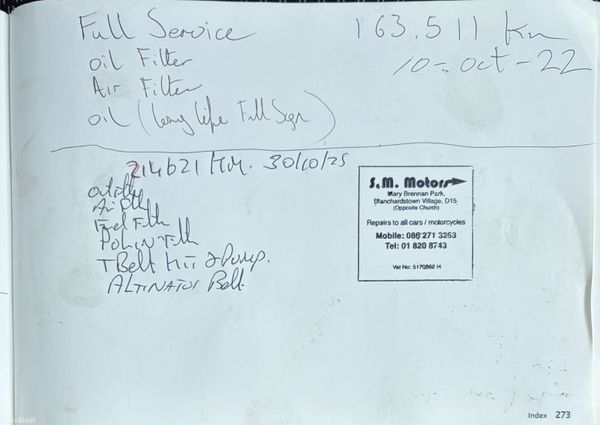 Full Service 163,511 Km
10-oct-22
oil Filter
Air Filter
oil (long life Full Syn)
214621 KM. 30/10/25
Fuel
T Belt Kit & Pump.
ALTINATOR Belt
S.M. Motors
Mary Brennan Park,
Blanchardstown Village, D15
(Opposite Church)
Repairs to all cars / motorcycles
Mobile: 086 271 3263
Tel: 01 820 8743
Vat No: 5170862 H
Index 273